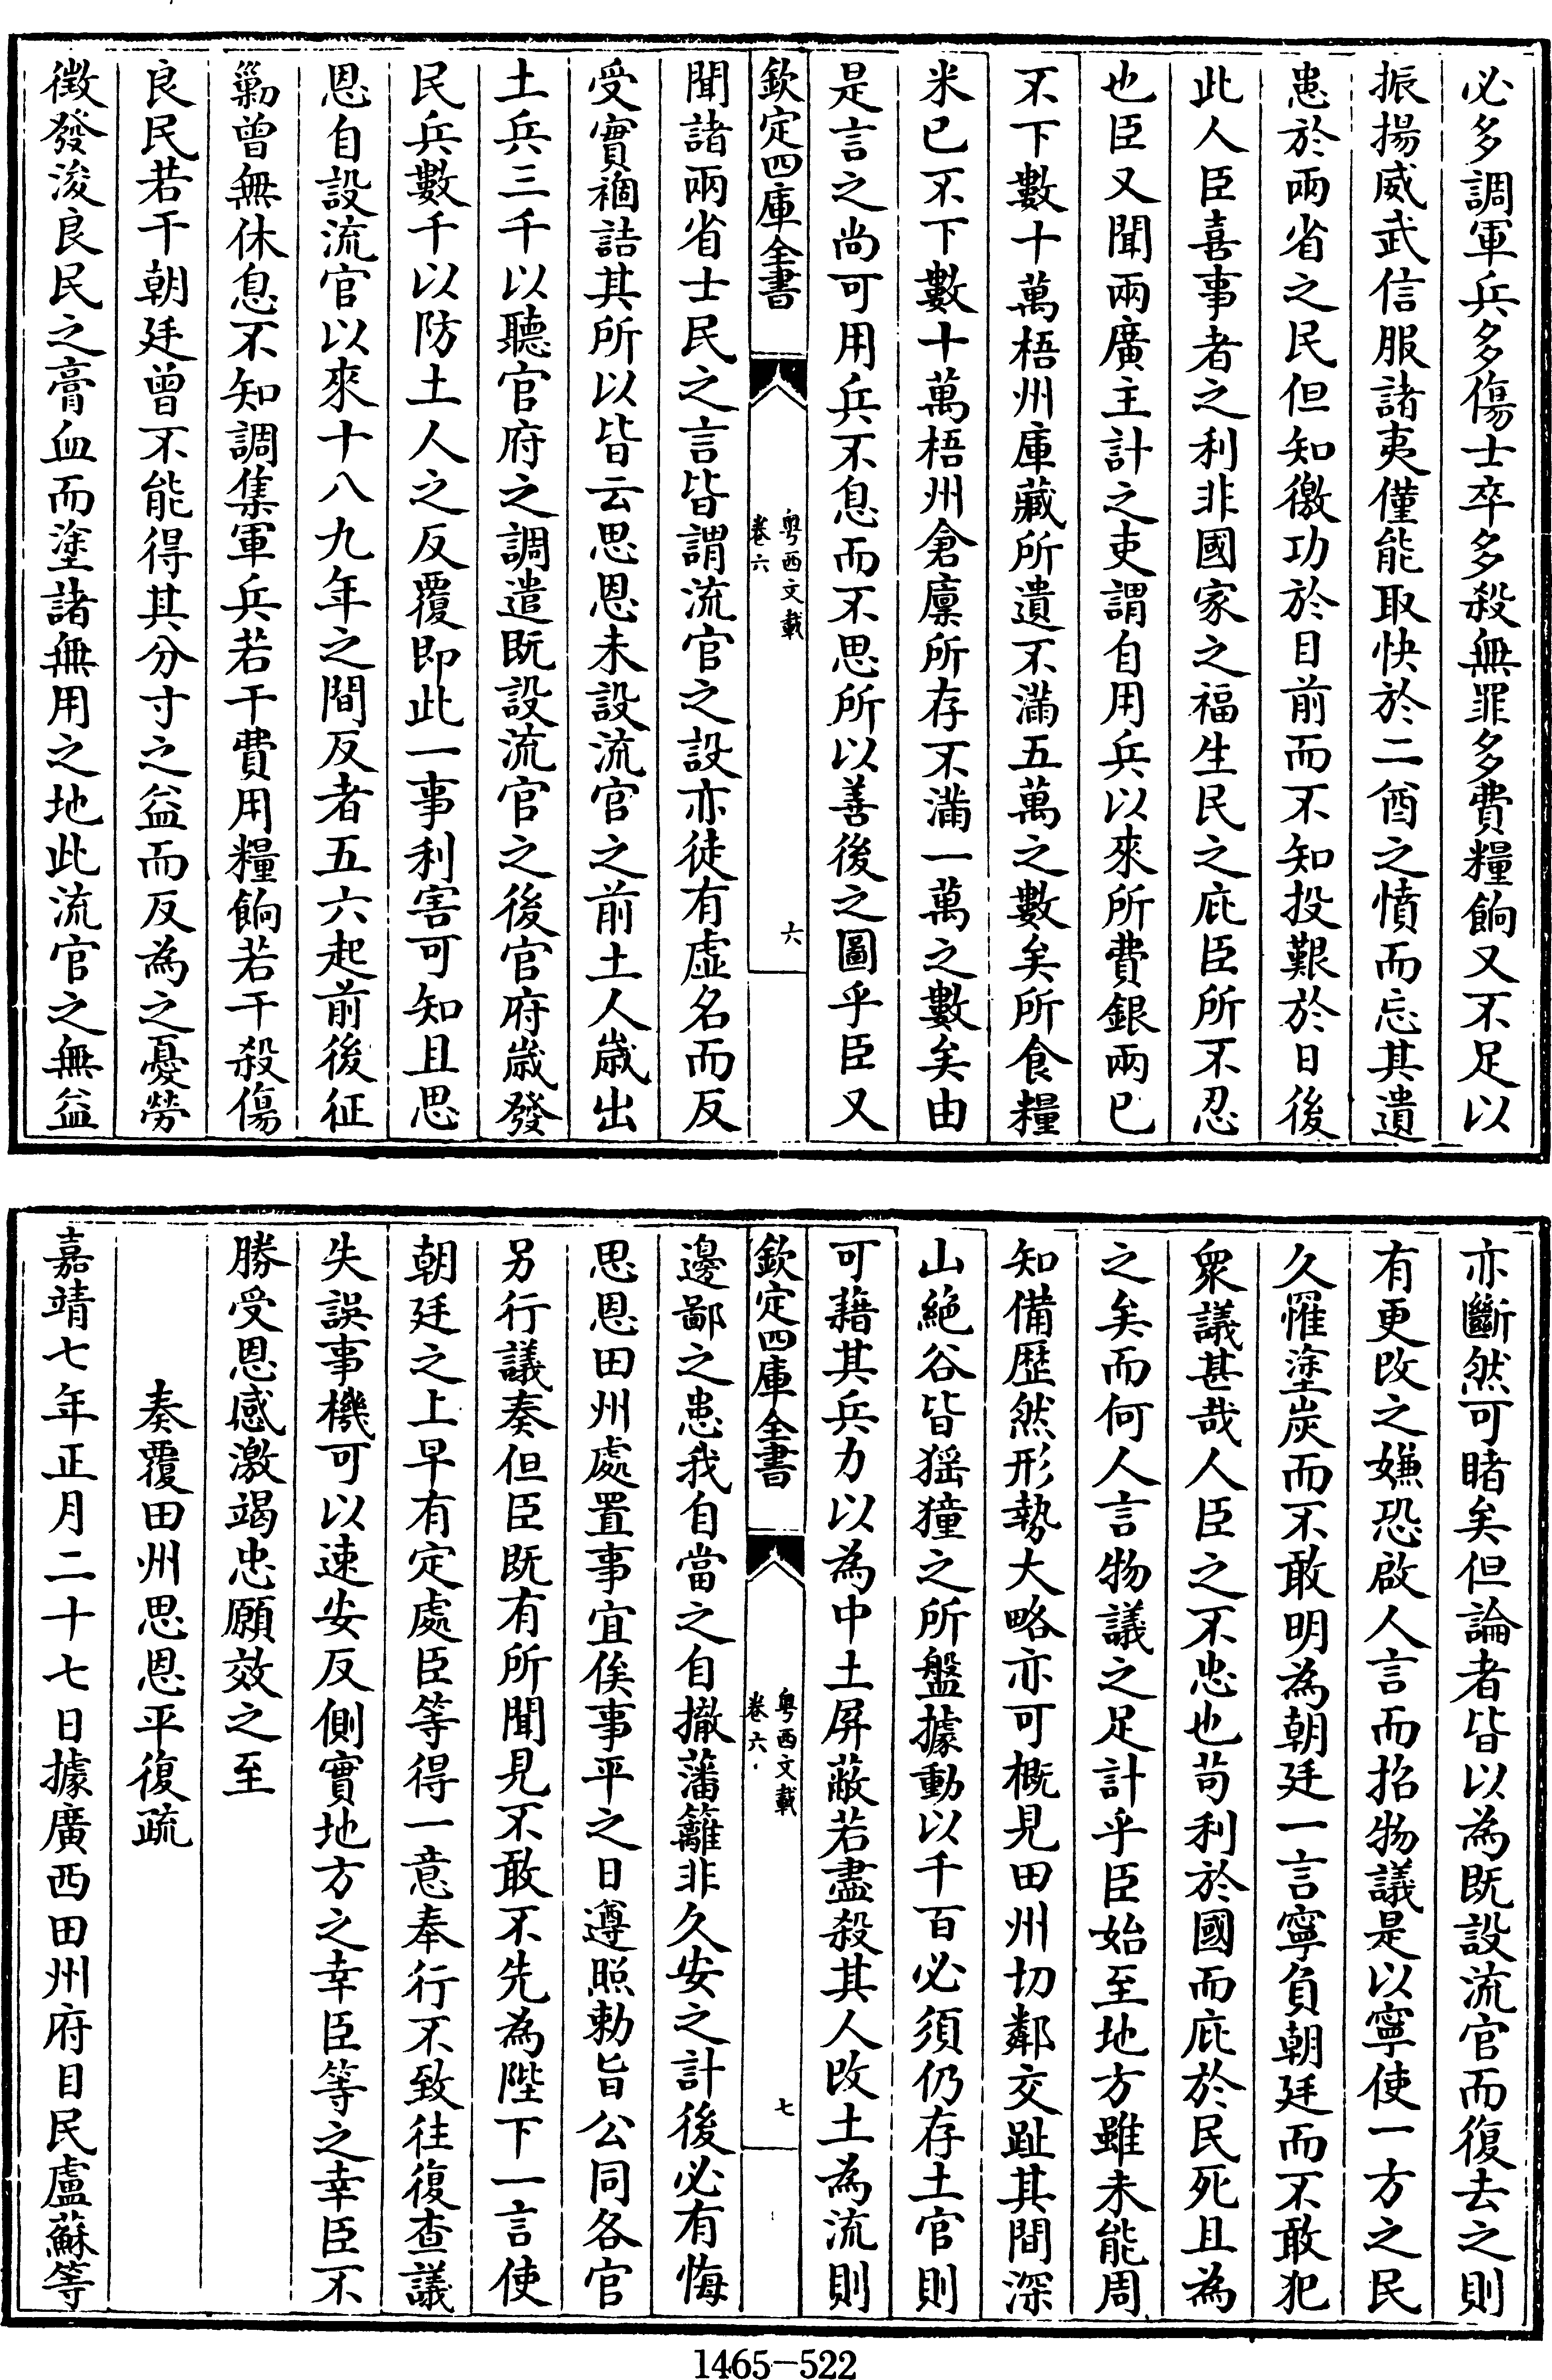 必多調軍兵多傷士卒多殺無罪多費糧餉又不足以
振揚威武信服諸夷僅能取快於二酋之憤而忘其遺
患於兩省之民但知徼功於目前而不知投艱於日後
此人臣喜事者之利非國家之福生民之庇臣所不忍
也臣又聞兩廣主計之吏謂自用兵以來所費銀兩已
不下數十萬梧州庫藏所遺不滿五萬之數矣所食糧
米已不下數十萬梧州倉廩所存不滿一萬之數矣由
是言之尚可用兵不息而不思所以善後之圖乎臣又
欽定四庫全書
粤西文載
卷六
六
聞諸兩省士民之言皆謂流官之設亦徒有虛名而反
受實禍詰其所以皆云思恩未設流官之前土人歲出
土兵三千以聽官府之調遣既設流官之後官府歲發
民兵數千以防土人之反覆即此一事利害可知且思
恩自設流官以來十八九年之間反者五六起前後征
勦曾無休息不知調集軍兵若干費用糧餉若干殺傷
良民若干朝廷曾不能得其分寸之益而反為之憂勞
徴發浚良民之膏血而塗諸無用之地此流官之無益
亦斷然可睹矣但論者皆以為既設流官而復去之則
有更改之嫌恐啟人言而招物議是以寧使一方之民
久罹塗炭而不敢明為朝廷一言寧負朝廷而不敢犯
衆議甚哉人臣之不忠也苟利於國而庇於民死且為
之矣而何人言物議之足計乎臣始至地方雖未能周
知備歴然形勢大略亦可概見田州切鄰交趾其間深
山絶谷皆猺獞之所盤據動以千百必須仍存土官則
可藉其兵力以為中土屏蔽若盡殺其人改土為流則
欽定四庫全書
粤西文載
卷六
七
邊鄙之患我自當之自撤藩籬非久安之計後必有悔
思恩田州處置事宜俟事平之日遵照勅旨公同各官
另行議奏但臣既有所聞見不敢不先為陛下一言使
朝廷之上早有定處臣等得一意奉行不致往復查議
失誤事機可以速安反側實地方之幸臣等之幸臣不
勝受恩感激竭忠願效之至
奏覆田州思恩平復疏
嘉靖七年正月二十七日據廣西田州府目民盧蘇等
1465-522